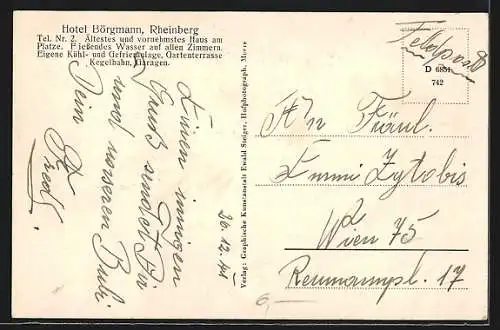 Hotel Börgmann, Rheinberg
Tel. Nr. 2. Ältestes und vornehmstes Haus am
Platze. Fließendes Wasser auf allen Zimmern.
Eigene Kühl- und Gefrieranlage, Gartenterrasse
Kegelbahn, Garagen.
Einen innigen
Gruß sendet Dir
und unseren Bubi
Dein
Fred.
Verlag: Graphische Kunstanstalt Ewald Steiger, Hofphotograph, Moers
Feldpost
D 6851
742
An Fräul.
Emmi Zytobis
Wien 75
17
6,—